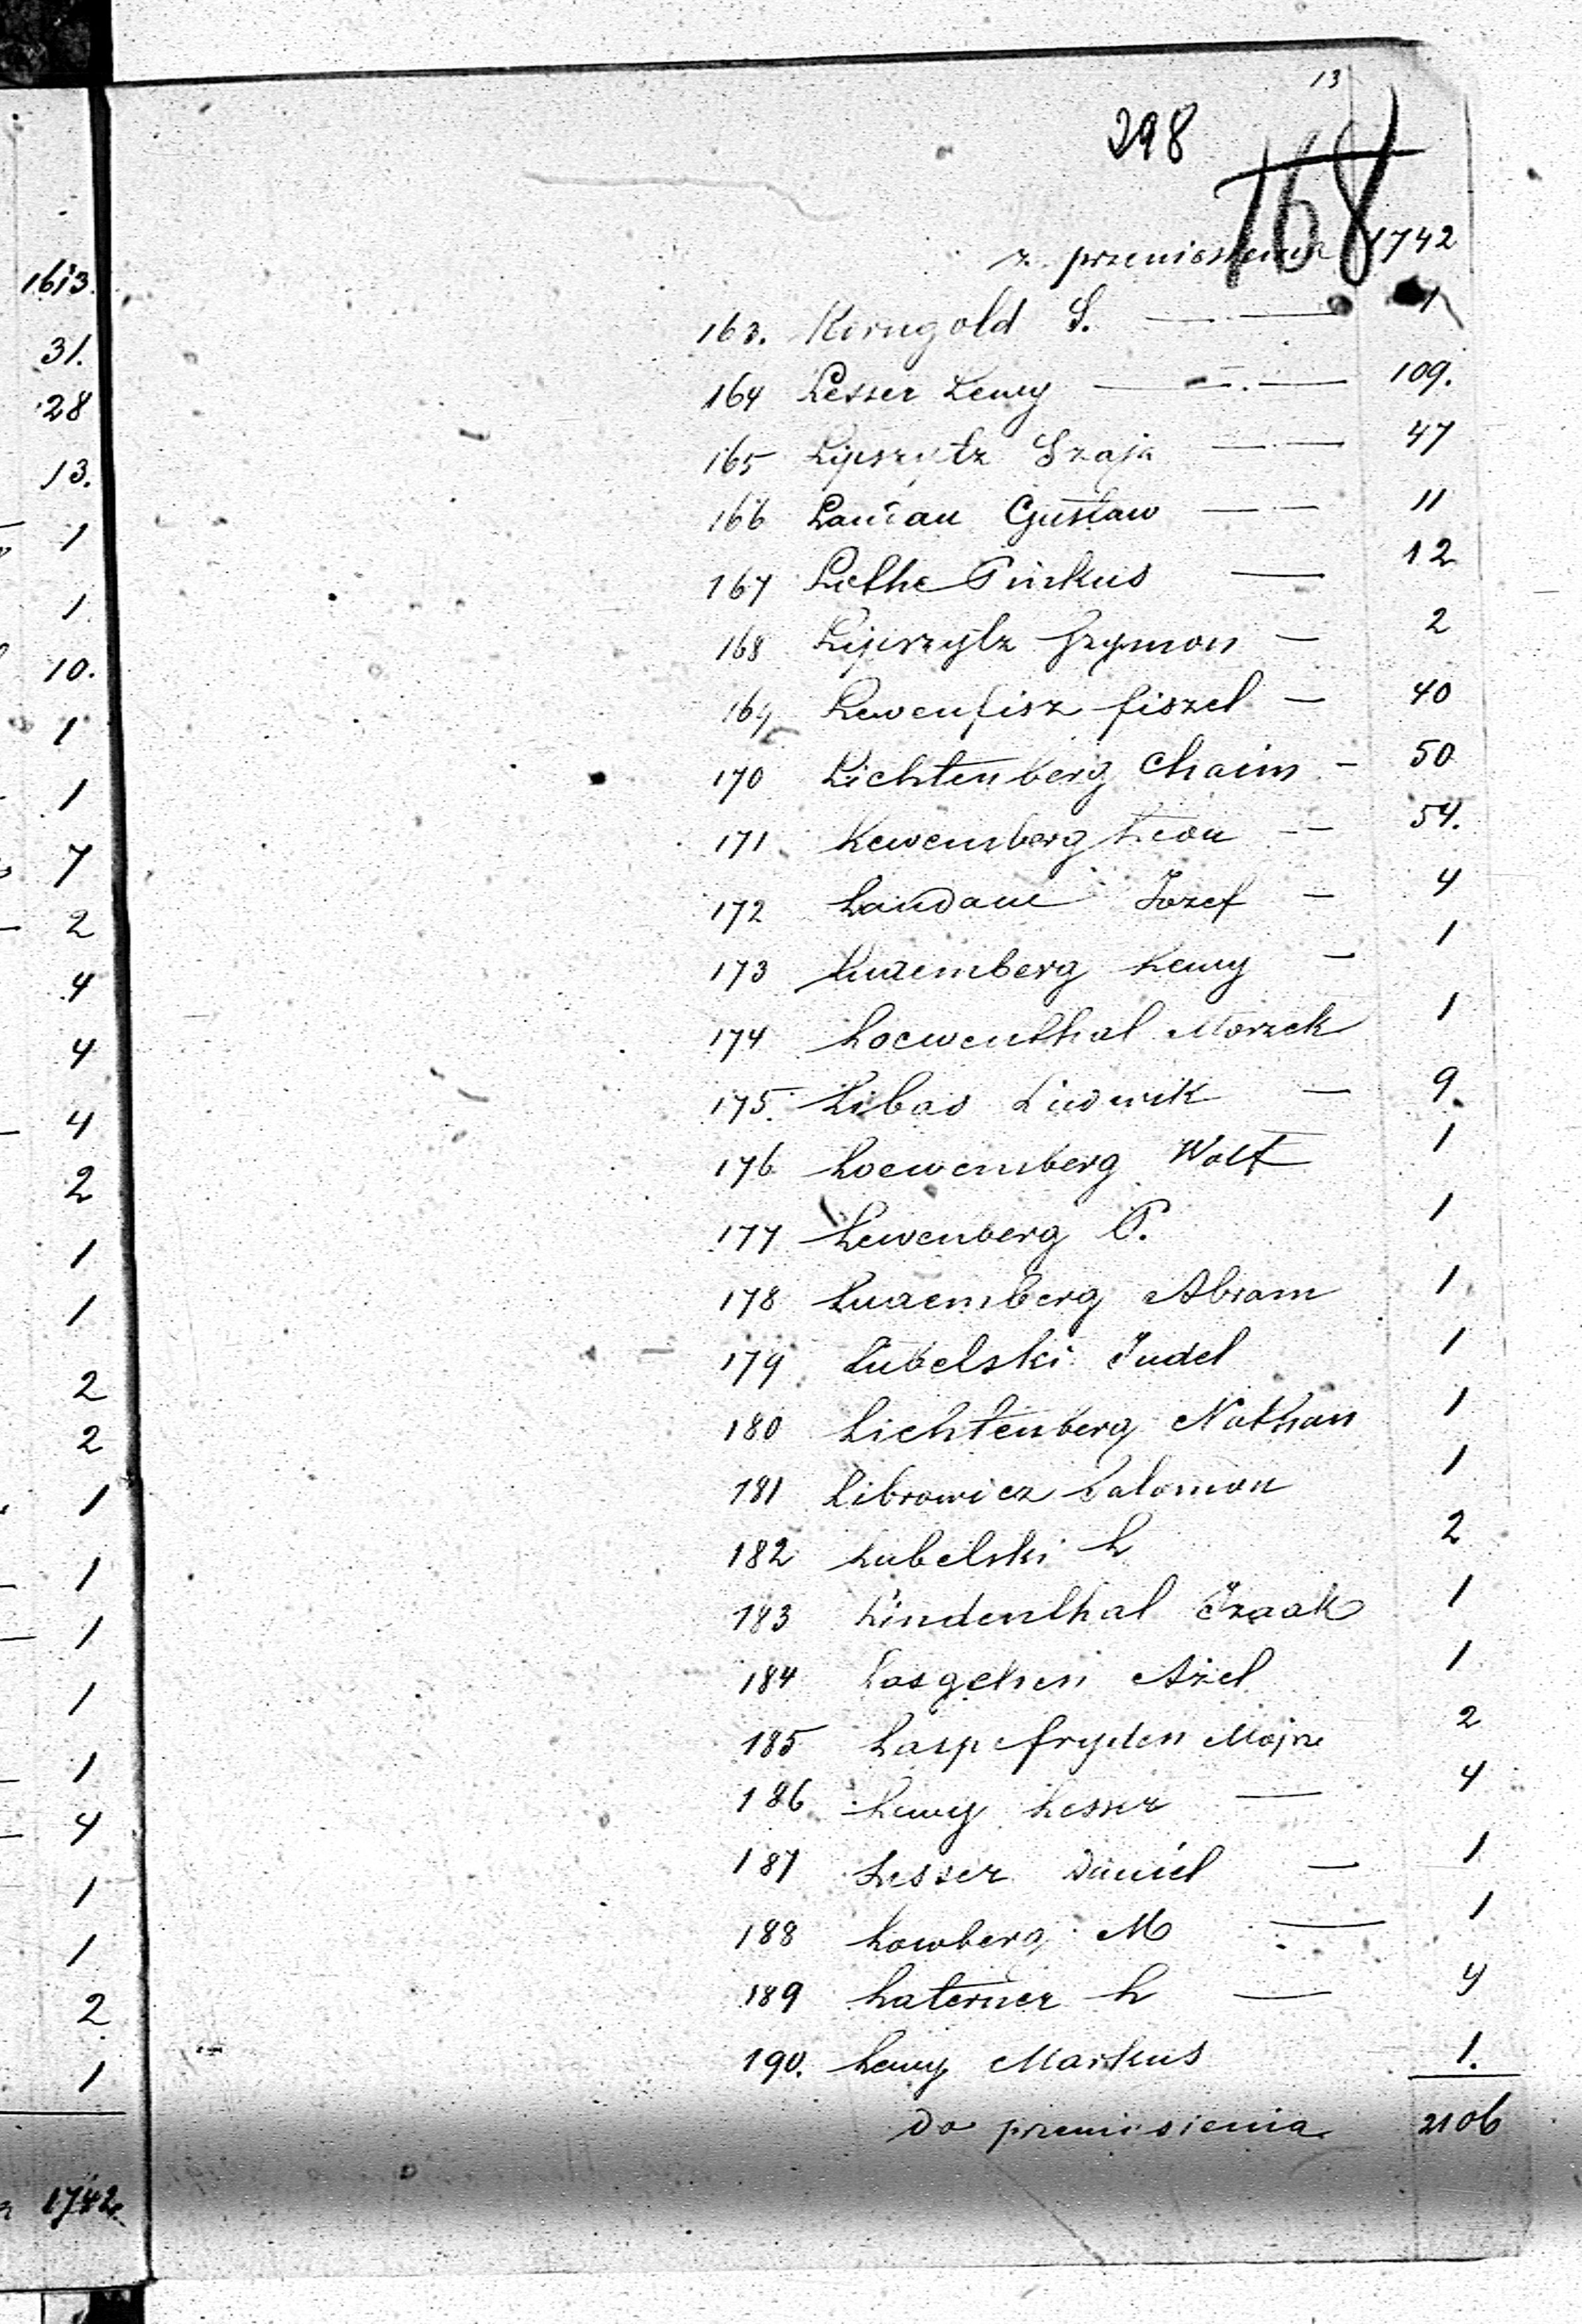 1613.
31.
28
13.
1
1
10.
1
1
7
2
4
4
4
2
1
1
2
2
1
1
1
1
1
4
1
1
2
1
1742.
13
298
168
z przeniesienia 1742
163. Korngold S. — — 1
164 Lesser Lewy — — 109.
165 Lipszytz Szaja — — 47
166 Landau Gustaw — — 11
167 Lethe Pinkus — 12
168 Lipszytz Szymon — 2
169 Lewenfisz fiszel — 40
170 Lichtenberg Chaim — 50
171 Lewemberg Leon — 54.
172 Landau Jozef — 4
173 Luxemberg Lewy — 1
174 Loewenthal Morzek 1
175. Libas Ludwik — 9.
176 Loewemberg Wolf 1
177 Lewenberg P. 1
178 Luxemberg Abram 1
179 Lubelski Judel 1
180 Lichtenberg Nathan 1
181 Librowicz Salomon 1
182 Lubelski L 2
183 Lindenthal Izaak 1
184 Azel 1
185 2
186 Lewy Lesser — 4
187 Lesser Daniel — 1
188 Lowberg M — 1
189 Laterner L — 4
190. Lewy Markus 1.
Do przeniesienia 2106